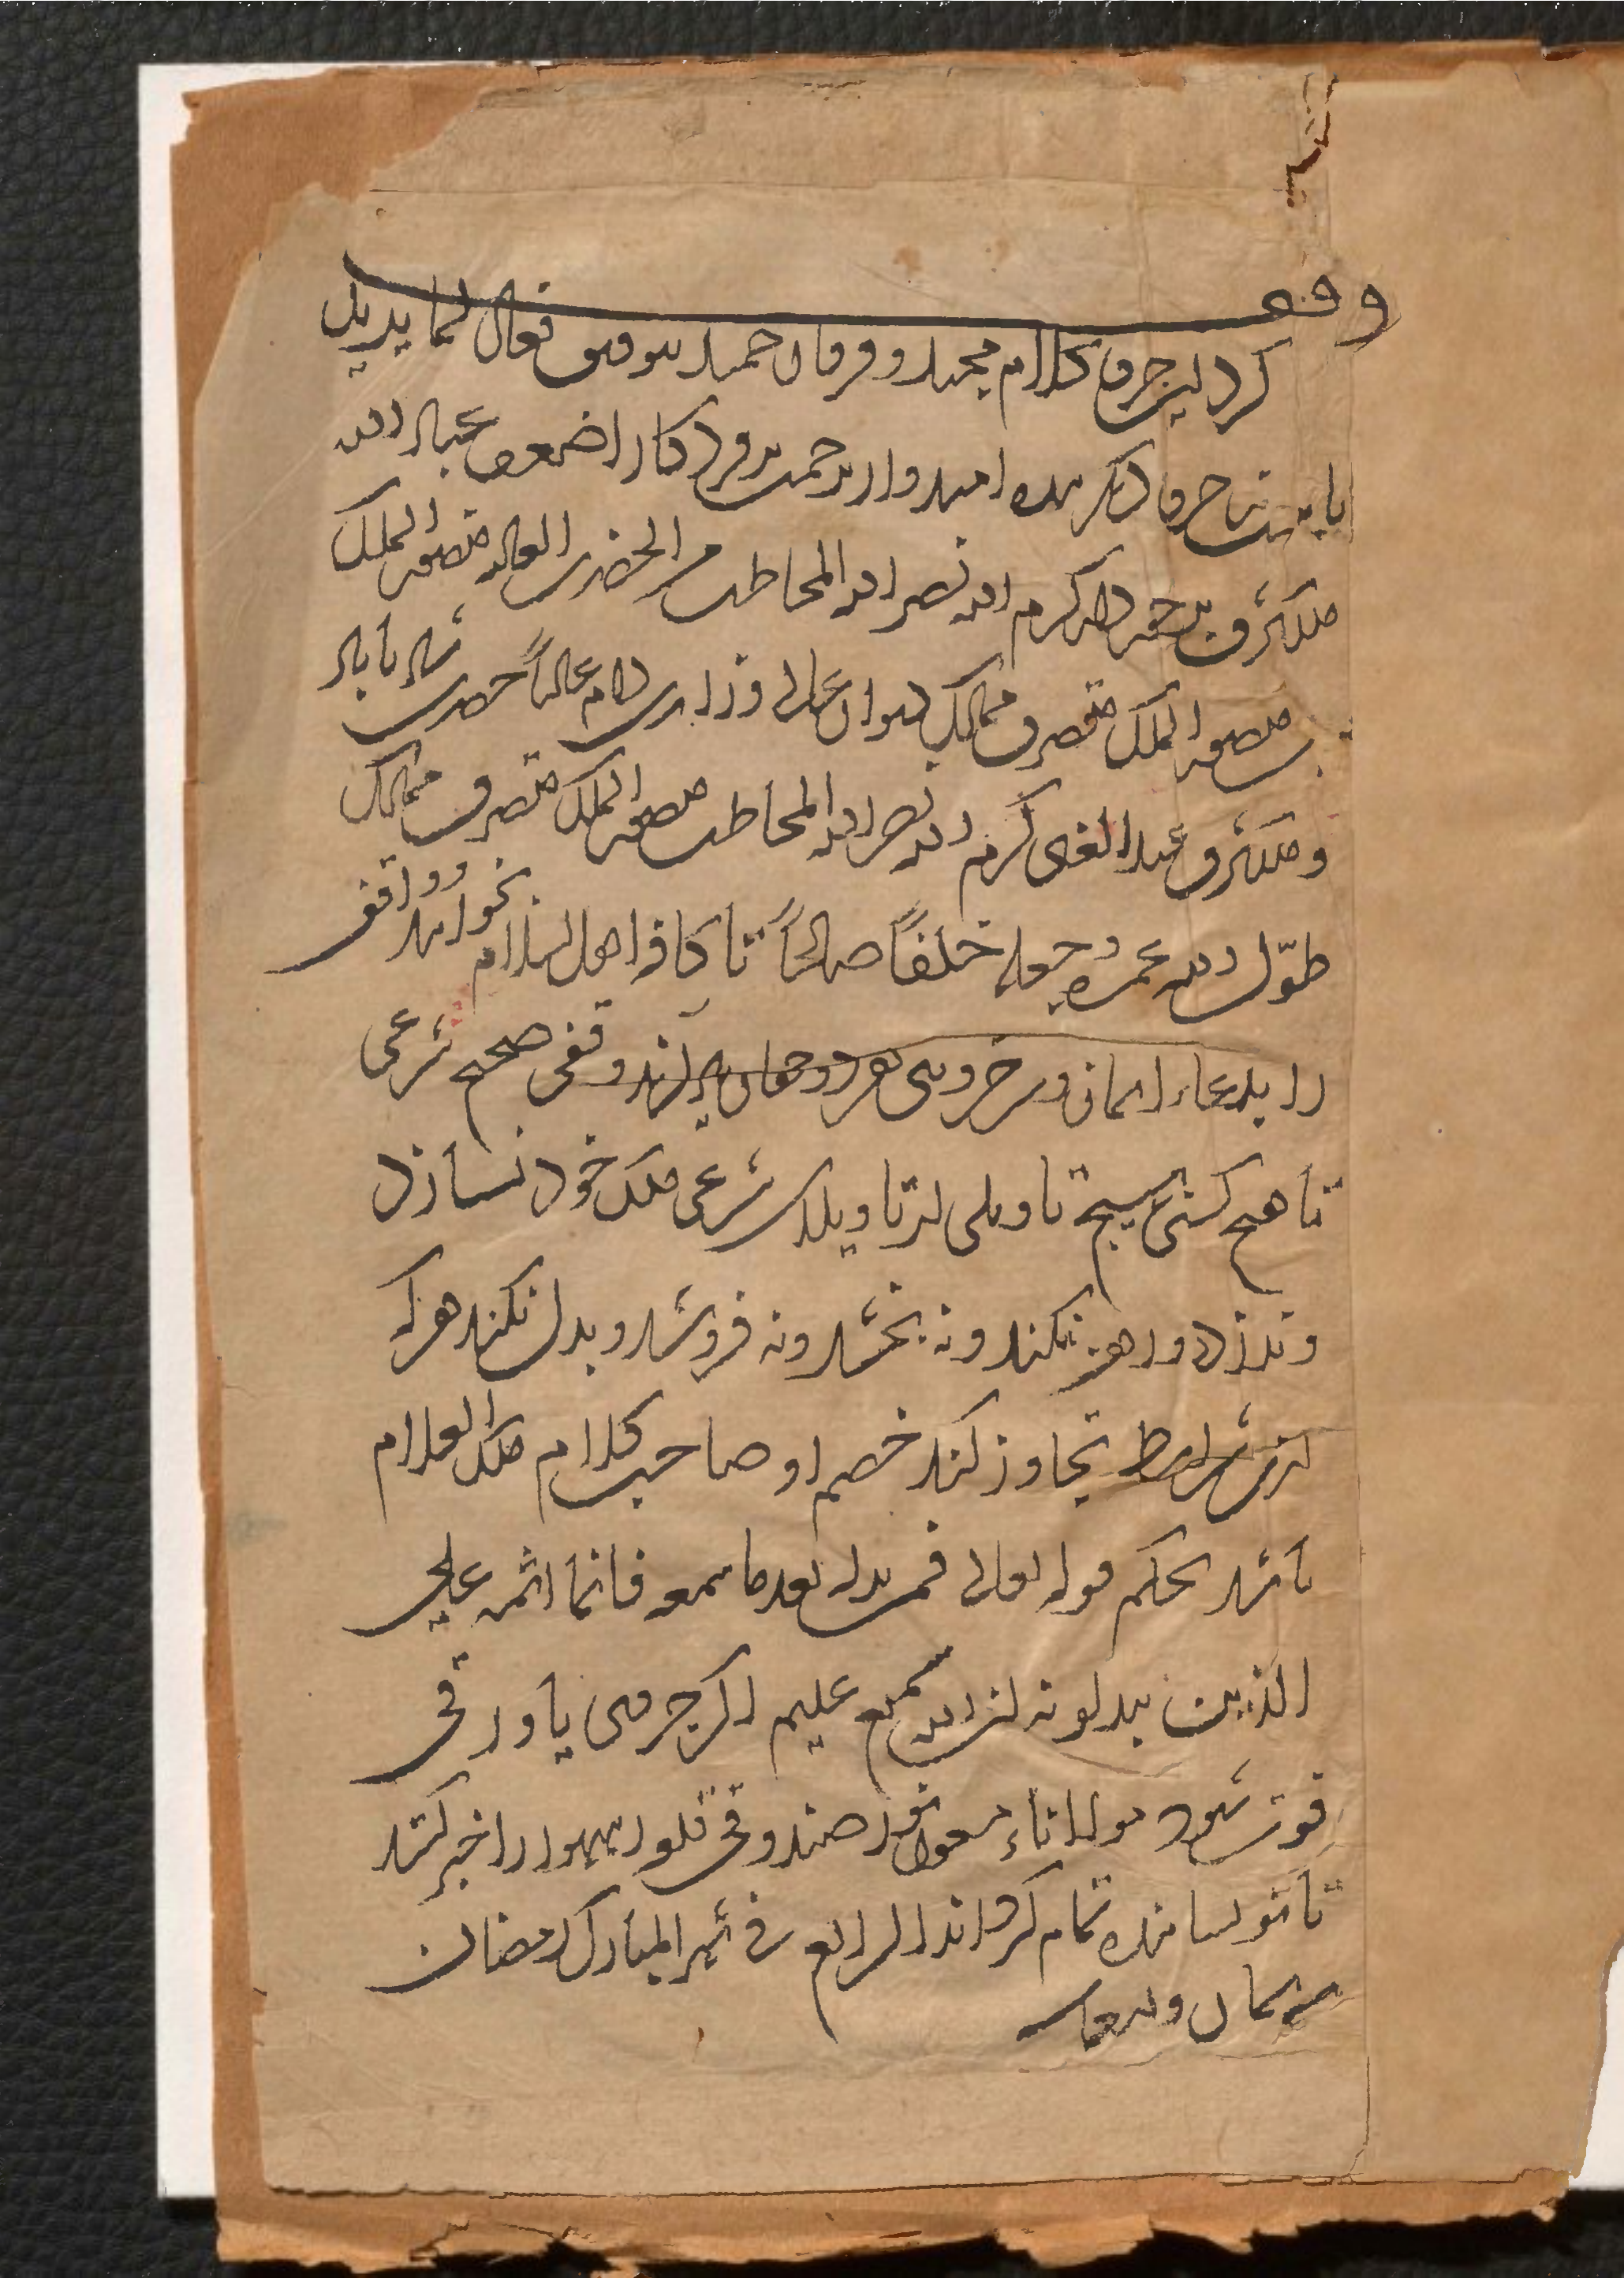 وقف
کرد این جزو کلام مجید و فرقان حمید بتوفیق فعال لما یرید
با بیست نه جزو دیکر بنده امیدوار برحمت پروردکار اضعف عباد الله
ملکشرق بن کرم الله نصر الله المخاطب من الحضرت العالیه منصور الملک
منصور الملک متصرف ممالک دیوان عالی وزارت دام عالیاً حضرت
و ملکشرق عبد الغنی کرم الله نصر الله المخاطب منصور الملک متصرف ممالک
طوّل الله عمره وجعله خلفاً صالحاً تا کافه اهل اسلام بخوانند و واقف
را بدعاء ایمان و سرخروی هر دو جهان یاد آرند وقفی صحیح شرعی
تا هیچ کسی بهیچ تاویلی از تاویلات شرعی ملک خود نسازد
و ندزدد و رهن نکند و نه بخشد و نه فروشد و بدل نکند هر که
ازین شرایط تجاوز کند خصم او صاحب کلام ملک العلام
باشد بحکم قوله تعالی فمن بدله بعد ما سمعه فانما اثمه علی
الذین یبدلونه ان الله سمیع علیم اکر جزوی یا ورقی
فوت شود مولانا صندوقی را خبر کنند
تا نویسانیده تمام کرداند الرابع فی شهر المبارک رمضان
ثمان و تسعمایه